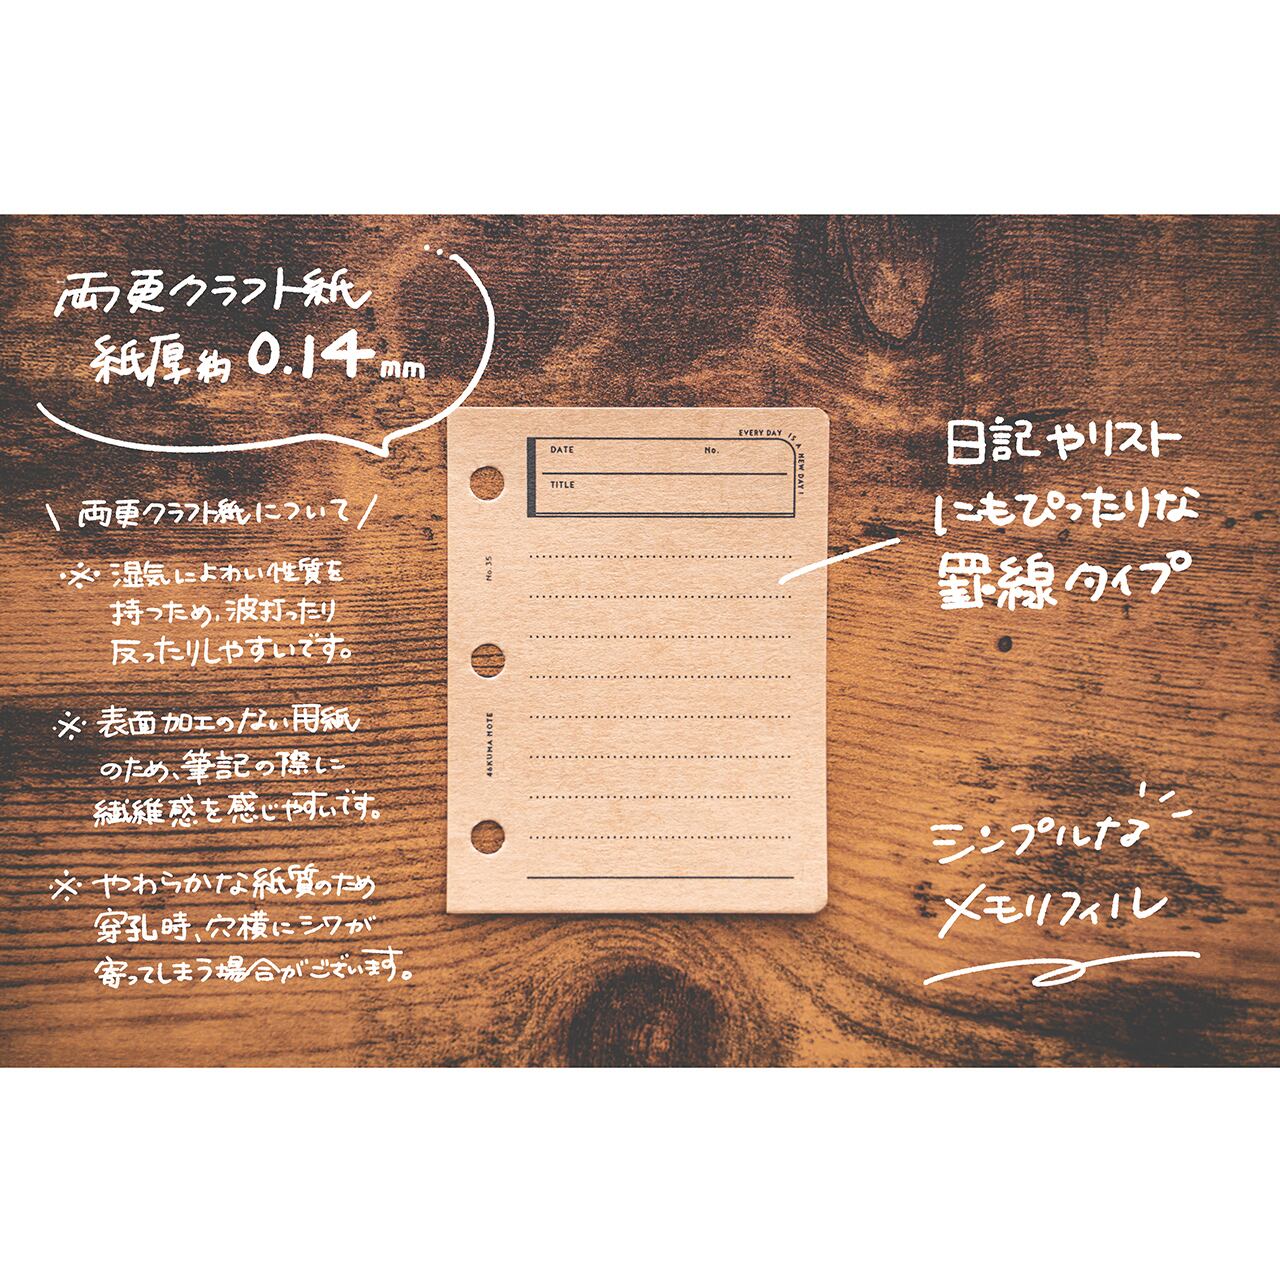 両更クラフト紙
紙厚約0.14mm
\ 両更クラフト紙について /
※ 湿気によわい性質を
持つため、波打ったり
反ったりしやすいです。
※ 表面加工のない用紙
のため、筆記の際に
繊維感を感じやすいです。
※ やわらかな紙質のため
穿孔時、穴横にシワが
寄ってしまう場合がございます。
EVERY DAY IS A NEW DAY!
DATE No.
TITLE
No.35
46KUMA NOTE
日記やリスト
にもぴったりな
罫線タイプ
シンプルな
メモリフィル